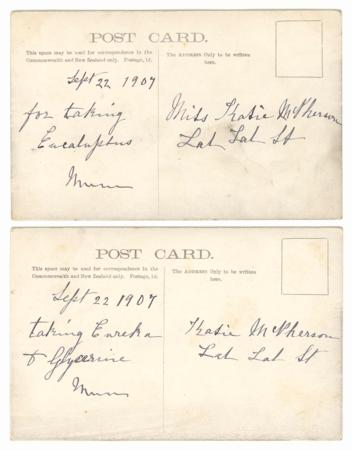 POST CARD.
This space may be used for correspondence in the
Commonwealth and New Zealand only. Postage, 1d.
The ADDRESS Only to be written
here.
Sept 22 1907
for taking
Eucaluptus
Mum
Miss Katie McPherson
Lal Lal St
POST CARD.
This space may be used for correspondence in the
Commonwealth and New Zealand only. Postage, 1d.
The ADDRESS Only to be written
here.
Sept 22 1907
taking Eureka
& Glycerine
Mum
Katie McPherson
Lal Lal St